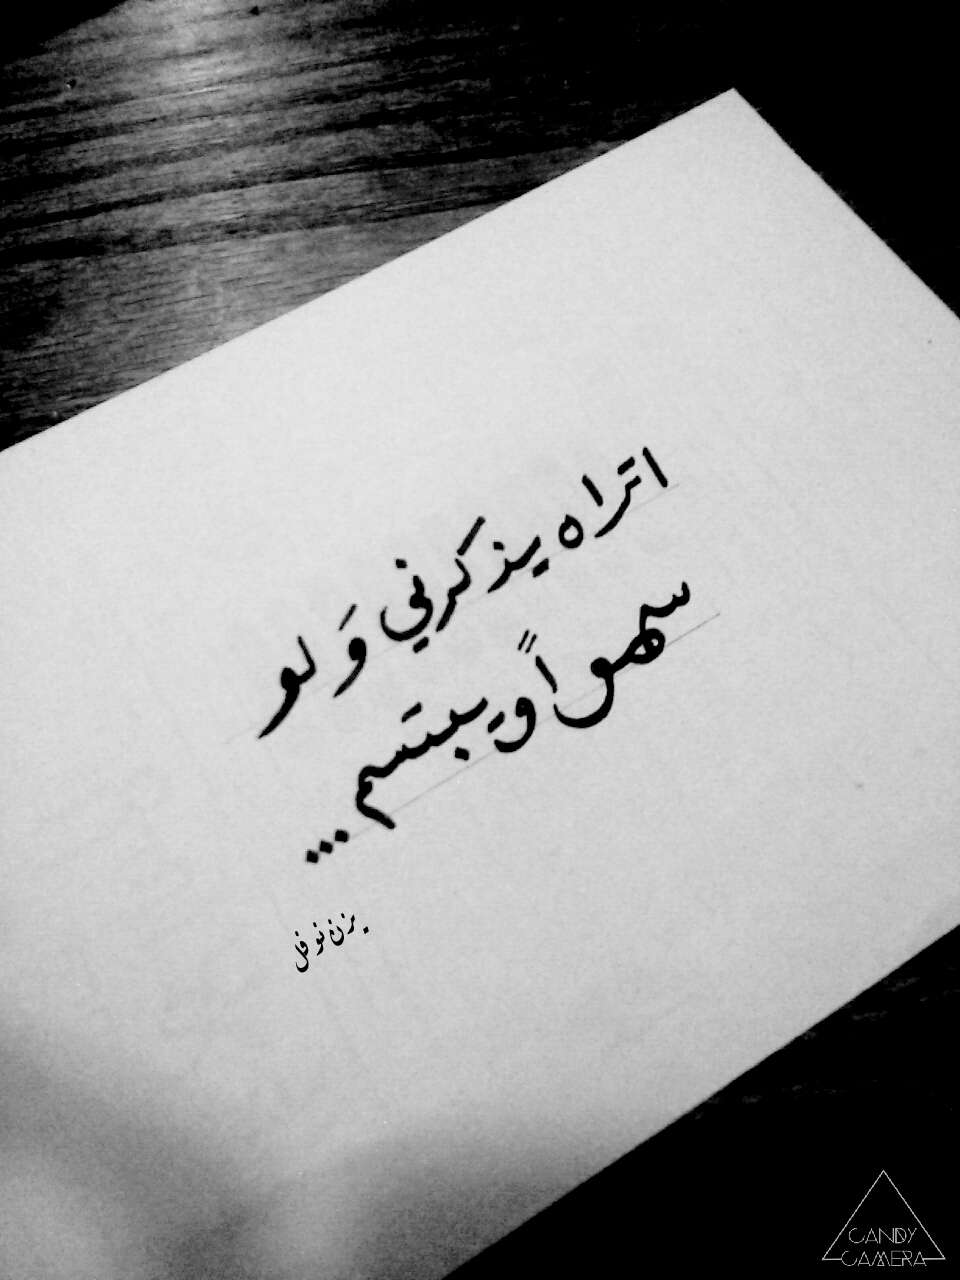 اتراه يذكرني وَ لو
سهواً ويبتسم...
يزن نوفل
CANDY
CAMERA